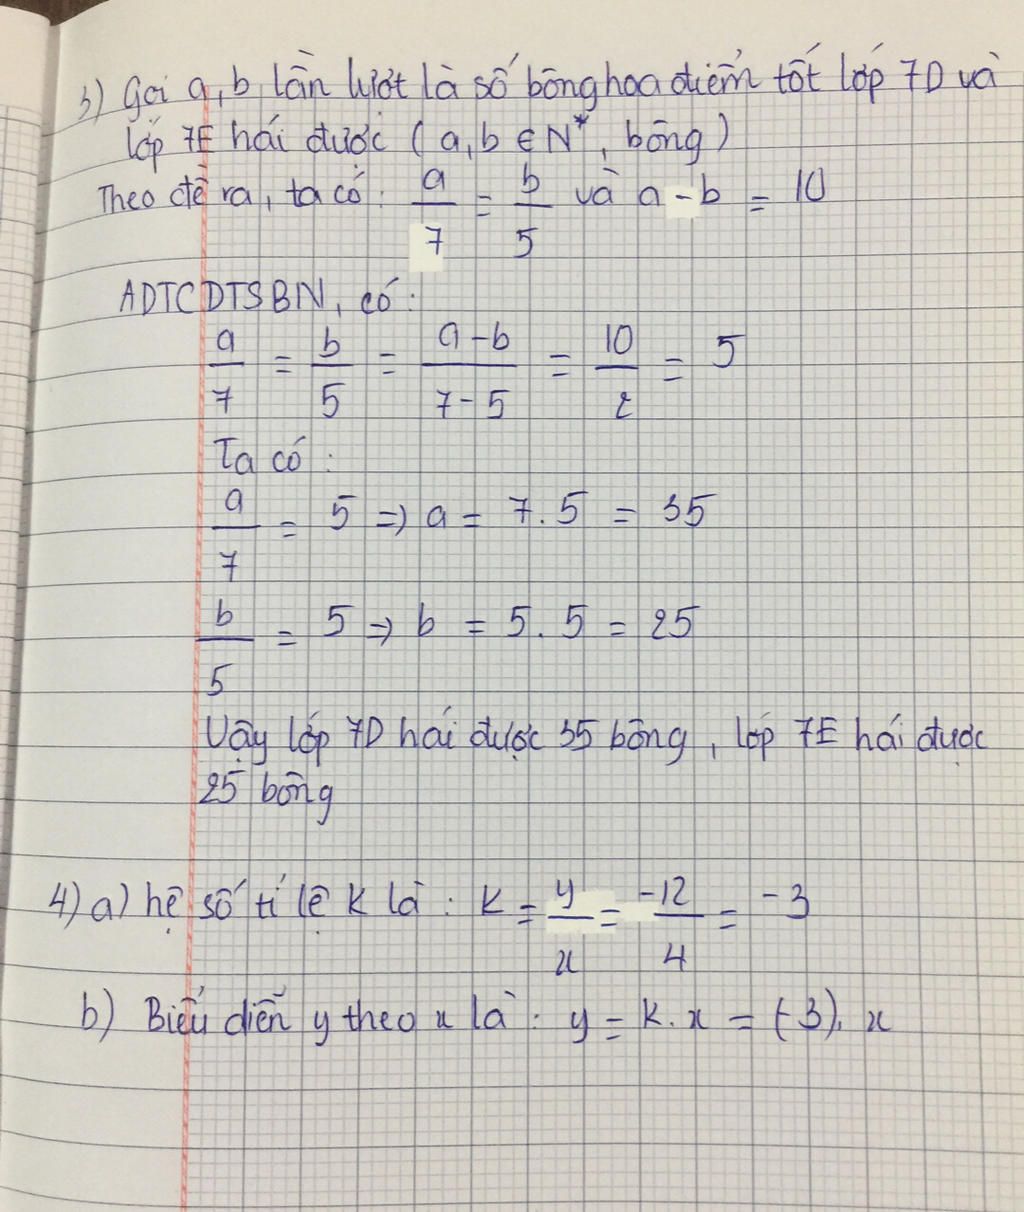 3) Gọi a, b lần lượt là số bông hoa điểm tốt lớp 7D và
lớp 7E hái được ( a, b ∈ N*, bông )
Theo đề ra, ta có : a/7 = b/5 và a - b = 10
ADTCDTSBN, có :
a/7 = b/5 = a-b/7-5 = 10/2 = 5
Ta có :
a/7 = 5 => a = 7 . 5 = 35
b/5 = 5 => b = 5 . 5 = 25
Vậy lớp 7D hái được 35 bông, lớp 7E hái được
25 bông
4) a) hệ số tỉ lệ k là : k = y/x = -12/4 = -3
b) Biểu diễn y theo x là : y = k . x = (-3) . x